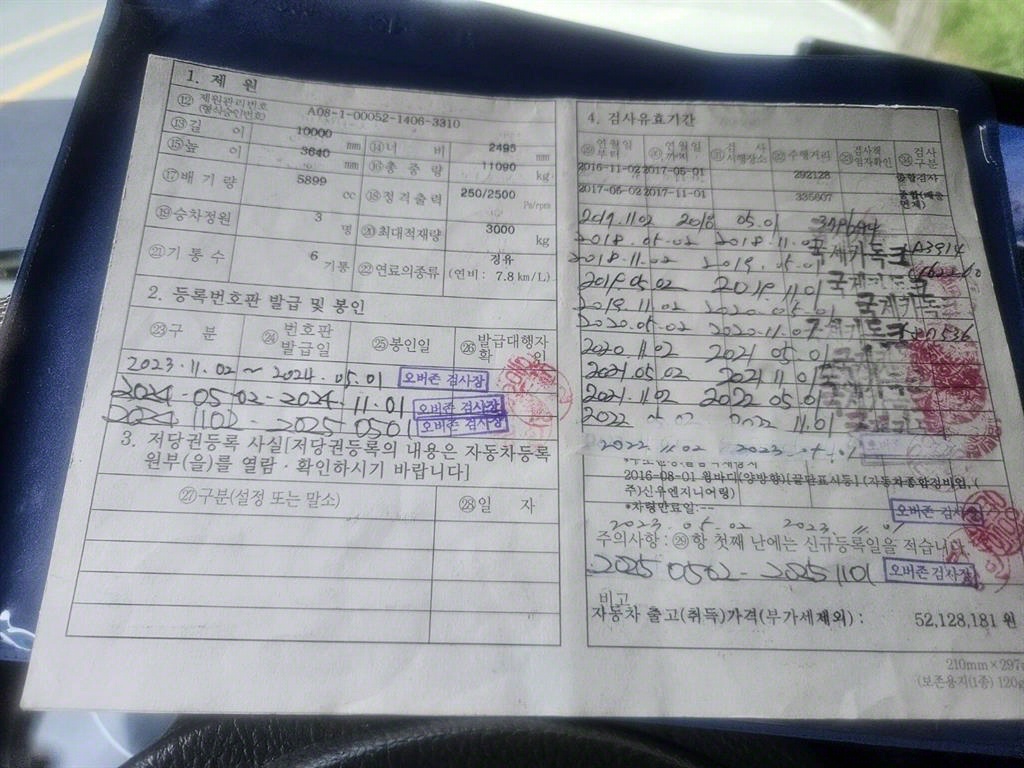 1. 제 원
⑫ 제원관리번호 (형식승인번호) A08-1-00052-1406-3310
⑬길 이 10000 mm ⑭너 비 2495 mm
⑮높 이 3640 mm ⑯총 중 량 11090 kg
⑰배 기 량 5899 cc ⑱정 격 출 력 250/2500 Ps/rpm
⑲승차정원 3 명 ⑳최대적재량 3000 kg
㉑기 통 수 6 기통 ㉒연료의종류 경유 (연비 : 7.8 km/L)
2. 등록번호판 발급 및 봉인
㉓구 분 ㉔번호판 발급일 ㉕봉인일 ㉖발급대행자 확 인
2023.11.02 ~ 2024.05.01 오버존 검사장
2024-05-02-2024.11.01 오버존 검사장
2024 1102 - 2025-0501 오버존 검사장
3. 저당권등록 사실[저당권등록의 내용은 자동차등록
원부(을)를 열람ㆍ확인하시기 바랍니다]
㉗구분(설정 또는 말소) ㉘일 자
4. 검사유효기간
㉙연월일 부터 ㉚연월일 까지 ㉛검 사 시행장소 ㉜주행거리 ㉝검사책 임자확인 ㉞검사 구분
2016-11-02 2017-05-01 292128 종합검사
2017-05-02 2017-11-01 335607
2017.11.02 2018 05.01
2018.05.02 2018.11.0
2018.11.02 2019.05.01
2019.05.02 2019.11.01
2019.11.02 2020.05.01
2020.05.02 2020.11.0
2020.11.02 2021 05.01
2021.05.02 2021 11.01
2021.11.02 2022 05.01
2022 05 02 2022 11.01
2022.11.02 2023.05.01
2016-08-01 윙바디(양방향)[끝단표시등] (자동차종합정비업,(
주)신우엔지니어링)
*차령만료일:-- 오버존 검사장
2023.05.02 2023.11.01
주의사항 : ㉙항 첫째 난에는 신규등록일을 적습니다
2025 0502 - 2025 1101 오버존 검사장
비고
자동차 출고(취득)가격(부가세제외) : 52,128,181 원
210mm×297
(보존용지(1종) 120g